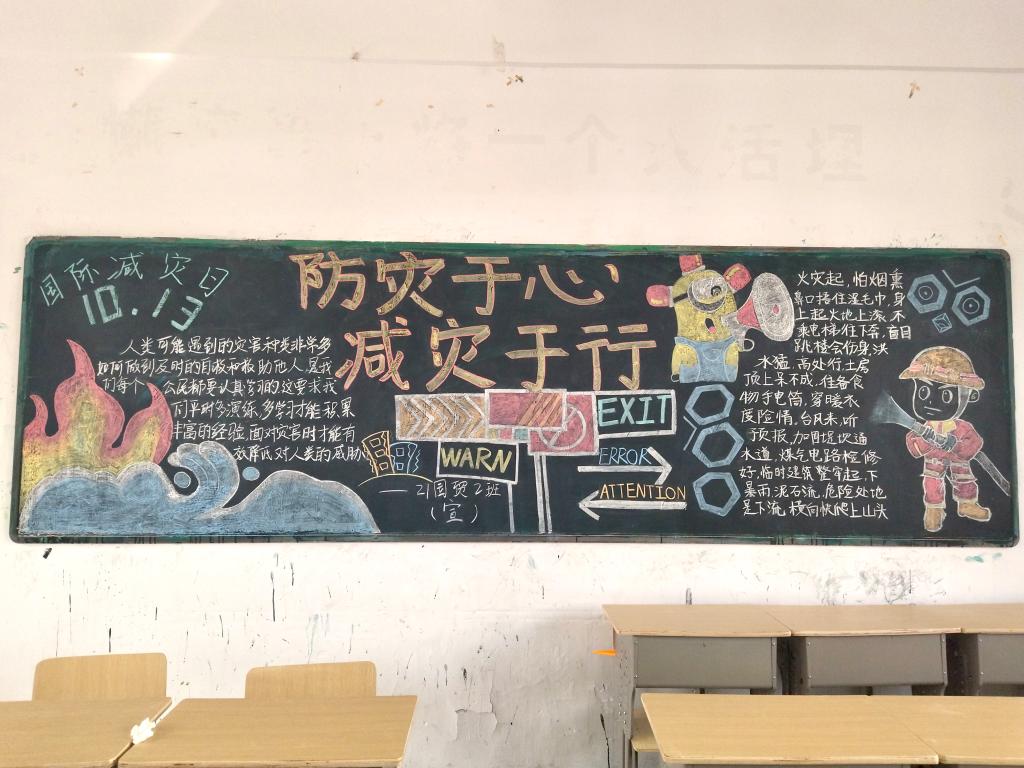 国际减灾日
10.13
防灾于心
减灾于行
人类可能遇到的灾害种类非常多
如何做到及时的自救和救助他人,是我
们每个公民都要认真学习的这要求我
们平时多演练,多学习才能积累
丰富的经验,面对灾害时才能有
效降低对人类的威胁
——21国贸2班
(宣)
WARN
EXIT
ERROR
ATTENTION
火灾起,怕烟熏
鼻口捂住湿毛巾,身
上起火地上滚,不
乘电梯往下奔,盲目
跳楼会伤身 洪
水猛,高处行,土房
顶上呆不成,准备食
物手电筒,穿暖衣
度险情,台风来,听
预报,加固堤地通
水道,煤气电路检修
好,临时建筑整牢起,下
暴雨,泥石流,危险处地
是下流,横向快爬上山头
一个 人活理